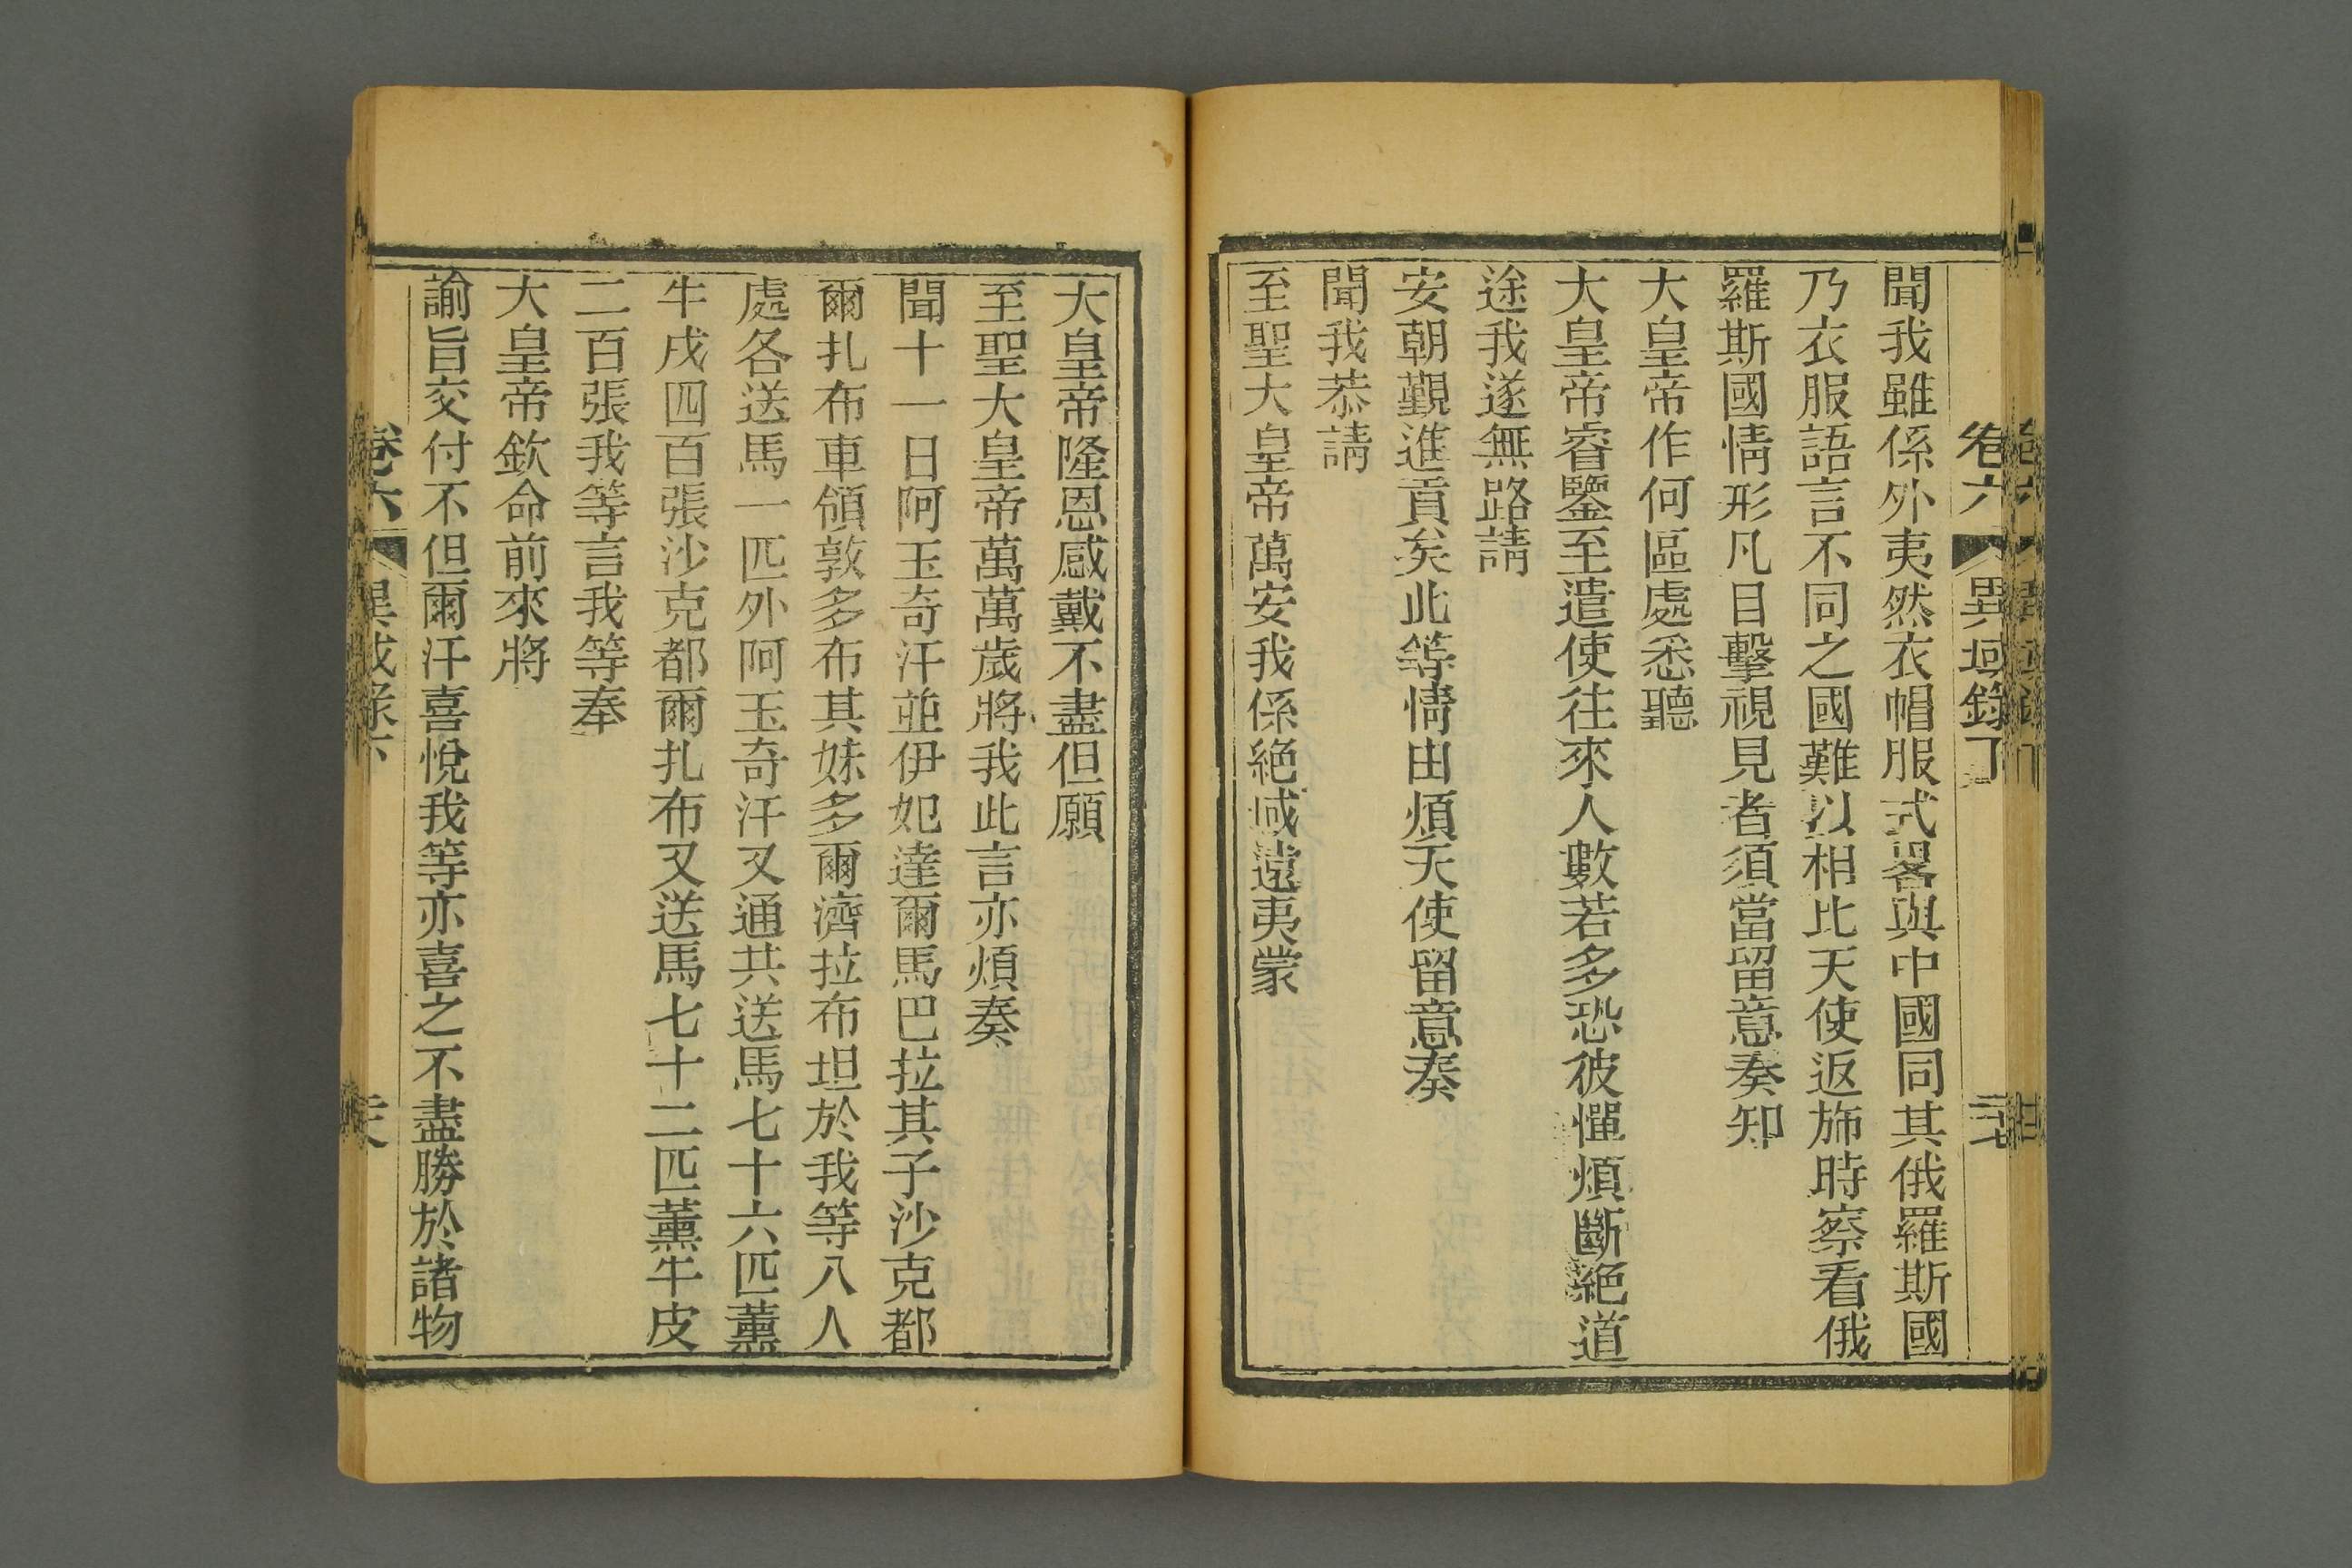 卷六 異域錄下 二十七
聞我雖係外夷然衣帽服式畧與中國同其俄羅斯國
乃衣服語言不同之國難以相比天使返旆時察看俄
羅斯國情形凡目擊視見者須當留意奏知
大皇帝作何區處悉聽
大皇帝睿鑒至遣使往來人數若多恐彼憚煩斷絕道
途我遂無路請
安朝覲進貢矣此等情由煩天使留意奏
聞我恭請
至聖大皇帝萬安我係絕域遠夷蒙
大皇帝隆恩感戴不盡但願
至聖大皇帝萬萬歲將我此言亦煩奏
聞十一日阿玉奇汗並伊妃達爾馬巴拉其子沙克都
爾扎布車領敦多布其妹多爾濟拉布坦於我等八人
處各送馬一匹外阿玉奇汗又通共送馬七十六匹薰
牛皮四百張沙克都爾扎布又送馬七十二匹薰牛皮
二百張我等言我等奉
大皇帝欽命前來將
諭旨交付不但爾汗喜悅我等亦喜之不盡勝於諸物
卷六 異域錄下